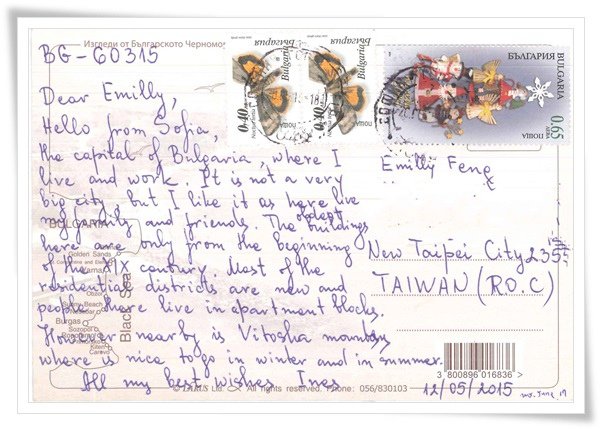 BG-60315
Изгледи от Българското Черномо
Dear Emilly,
Hello from Sofia,
the capital of Bulgaria, where I
live and work. It is not a very
big city but I like it as here live
my family and friends. The oldest buildings
here are only from the beginning
of the XIX century. Most of the
residential districts are new and
people here live in apartment blocks.
However nearby is Vitosha mountain
where is nice to go in winter and in summer.
All my best wishes Ines
BULGARIA
Golden Sands
Varna
Burgas
Sozopol
Kiten
Carevo
Black Sea
Ltd. All rights reserved. Phone: 056/830103
България
Bulgaria
0.40
ПОЩА
България
Bulgaria
0.40
ПОЩА
БЪЛГАРИЯ
BULGARIA
ПОЩА
0.65
Emilly Feng
New Taipei City 235
TAIWAN (R.O.C)
3 800896 016836
12/05/2015